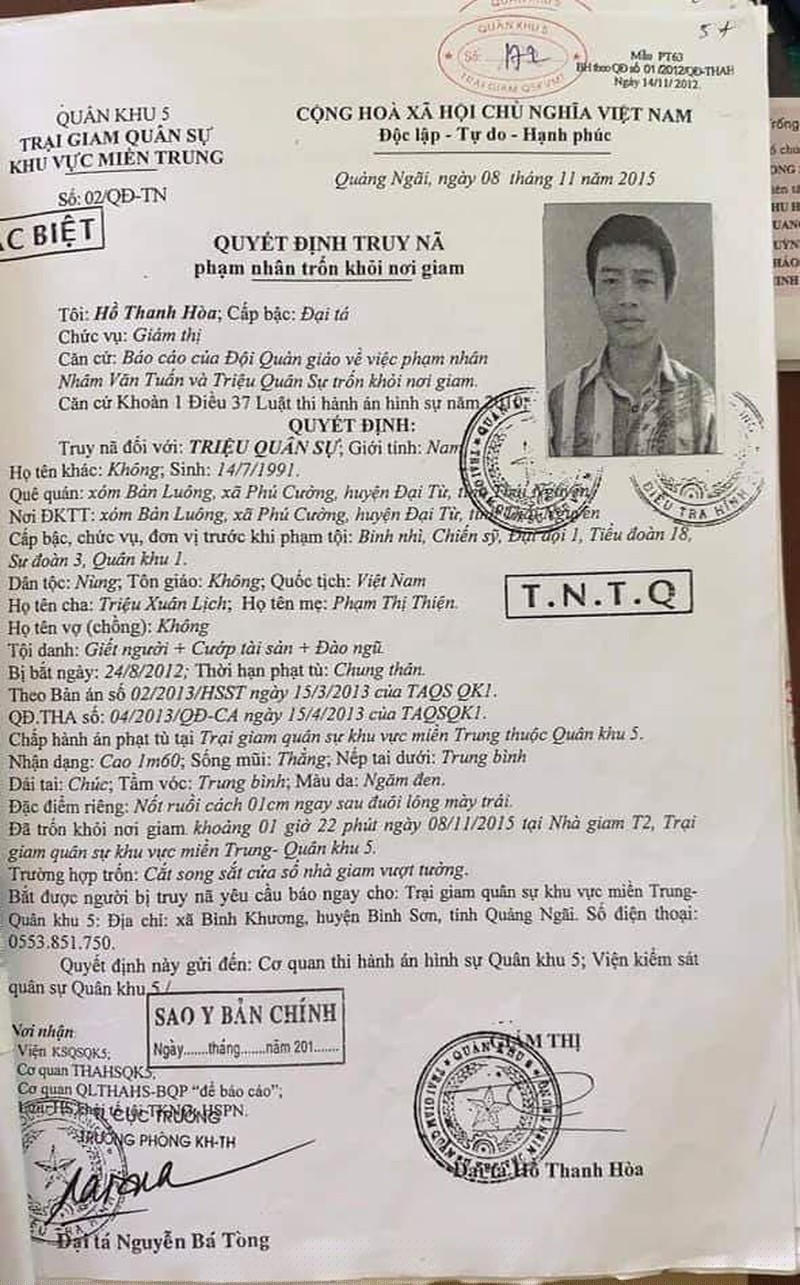 5+
QUÂN KHU 5
Số: 172
TRẠI GIAM QSKVMT
Mẫu PT63
BH theo QĐ số 01/2012/QĐ-THAH
Ngày 14/11/2012.
QUÂN KHU 5
TRẠI GIAM QUÂN SỰ
KHU VỰC MIỀN TRUNG
Số: 02/QĐ-TN
CỘNG HOÀ XÃ HỘI CHỦ NGHĨA VIỆT NAM
Độc lập - Tự do - Hạnh phúc
Quảng Ngãi, ngày 08 tháng 11 năm 2015
ẶC BIỆT
QUYẾT ĐỊNH TRUY NÃ
phạm nhân trốn khỏi nơi giam
Tôi: Hồ Thanh Hòa; Cấp bậc: Đại tá
Chức vụ: Giám thị
Căn cứ: Báo cáo của Đội Quản giáo về việc phạm nhân
Nhâm Văn Tuấn và Triệu Quân Sự trốn khỏi nơi giam.
Căn cứ Khoản 1 Điều 37 Luật thi hành án hình sự năm
QUYẾT ĐỊNH:
Truy nã đối với: TRIỆU QUÂN SỰ; Giới tính: Nam
Họ tên khác: Không; Sinh: 14/7/1991.
Quê quán: xóm Bản Luông, xã Phú Cường, huyện Đại Từ, tỉnh Thái Nguyên
Nơi ĐKTT: xóm Bản Luông, xã Phú Cường, huyện Đại Từ, tỉnh Thái Nguyên
Cấp bậc, chức vụ, đơn vị trước khi phạm tội: Binh nhì, Chiến sỹ, Đại đội 1, Tiểu đoàn 18,
Sư đoàn 3, Quân khu 1.
Dân tộc: Nùng; Tôn giáo: Không; Quốc tịch: Việt Nam
Họ tên cha: Triệu Xuân Lịch; Họ tên mẹ: Phạm Thị Thiện.
Họ tên vợ (chồng): Không
T.N.T.Q
Tội danh: Giết người + Cướp tài sản + Đào ngũ.
Bị bắt ngày: 24/8/2012; Thời hạn phạt tù: Chung thân.
Theo Bản án số 02/2013/HSST ngày 15/3/2013 của TAQS QK1.
QĐ.THA số: 04/2013/QĐ-CA ngày 15/4/2013 của TAQSQK1.
Chấp hành án phạt tù tại Trại giam quân sự khu vực miền Trung thuộc Quân khu 5.
Nhận dạng: Cao 1m60; Sống mũi: Thẳng; Nếp tai dưới: Trung bình
Dái tai: Chúc; Tầm vóc: Trung bình; Màu da: Ngăm đen.
Đặc điểm riêng: Nốt ruồi cách 01cm ngay sau đuôi lông mày trái.
Đã trốn khỏi nơi giam khoảng 01 giờ 22 phút ngày 08/11/2015 tại Nhà giam T2, Trại
giam quân sự khu vực miền Trung- Quân khu 5.
Trường hợp trốn: Cắt song sắt cửa sổ nhà giam vượt tường.
Bắt được người bị truy nã yêu cầu báo ngay cho: Trại giam quân sự khu vực miền Trung-
Quân khu 5: Địa chỉ: xã Bình Khương, huyện Bình Sơn, tỉnh Quảng Ngãi. Số điện thoại:
0553.851.750.
Quyết định này gửi đến: Cơ quan thi hành án hình sự Quân khu 5; Viện kiểm sát
quân sự Quân khu 5./
SAO Y BẢN CHÍNH
Ngày.......tháng.......năm 201.......
Nơi nhận
Viện KSQSQK5;
Cơ quan THAHSQK5;
Cơ quan QLTHAHS-BQP “để báo cáo”;
HSPN.
CỤC TRƯỞNG
TRƯỞNG PHÒNG KH-TH
Đại tá Nguyễn Bá Tòng
GIÁM THỊ
Đại tá Hồ Thanh Hòa
ĐIỀU TRA HÌNH